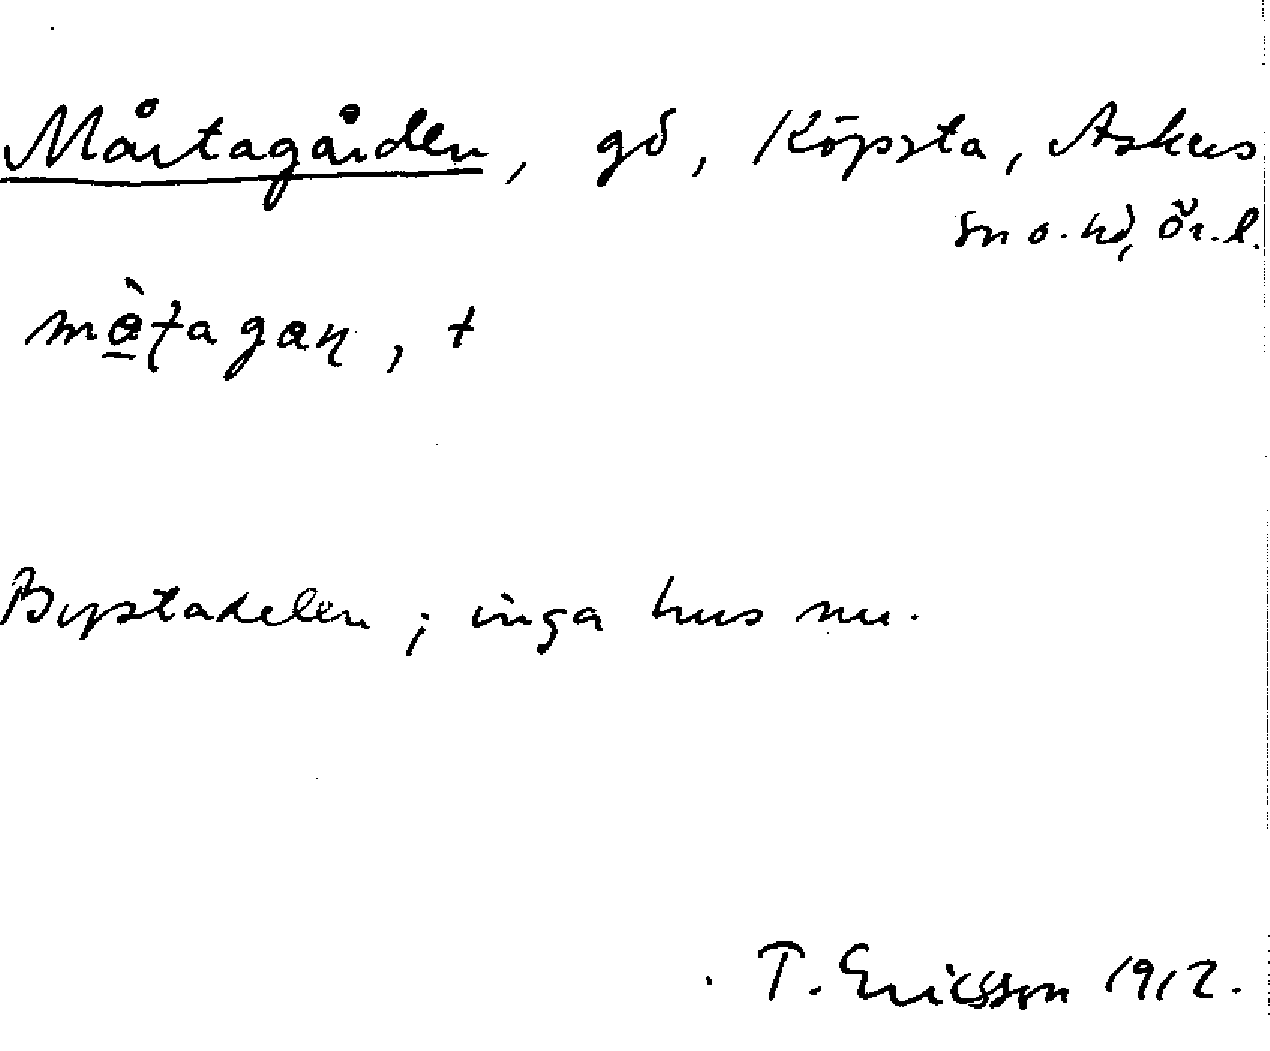 Mårtagården, gd, Köpsta, Askers
sn o. hd, Ör. l.
må̀ʈagaɳ, +
Bystadelen; inga hus nu.
T. Ericsson 1912.